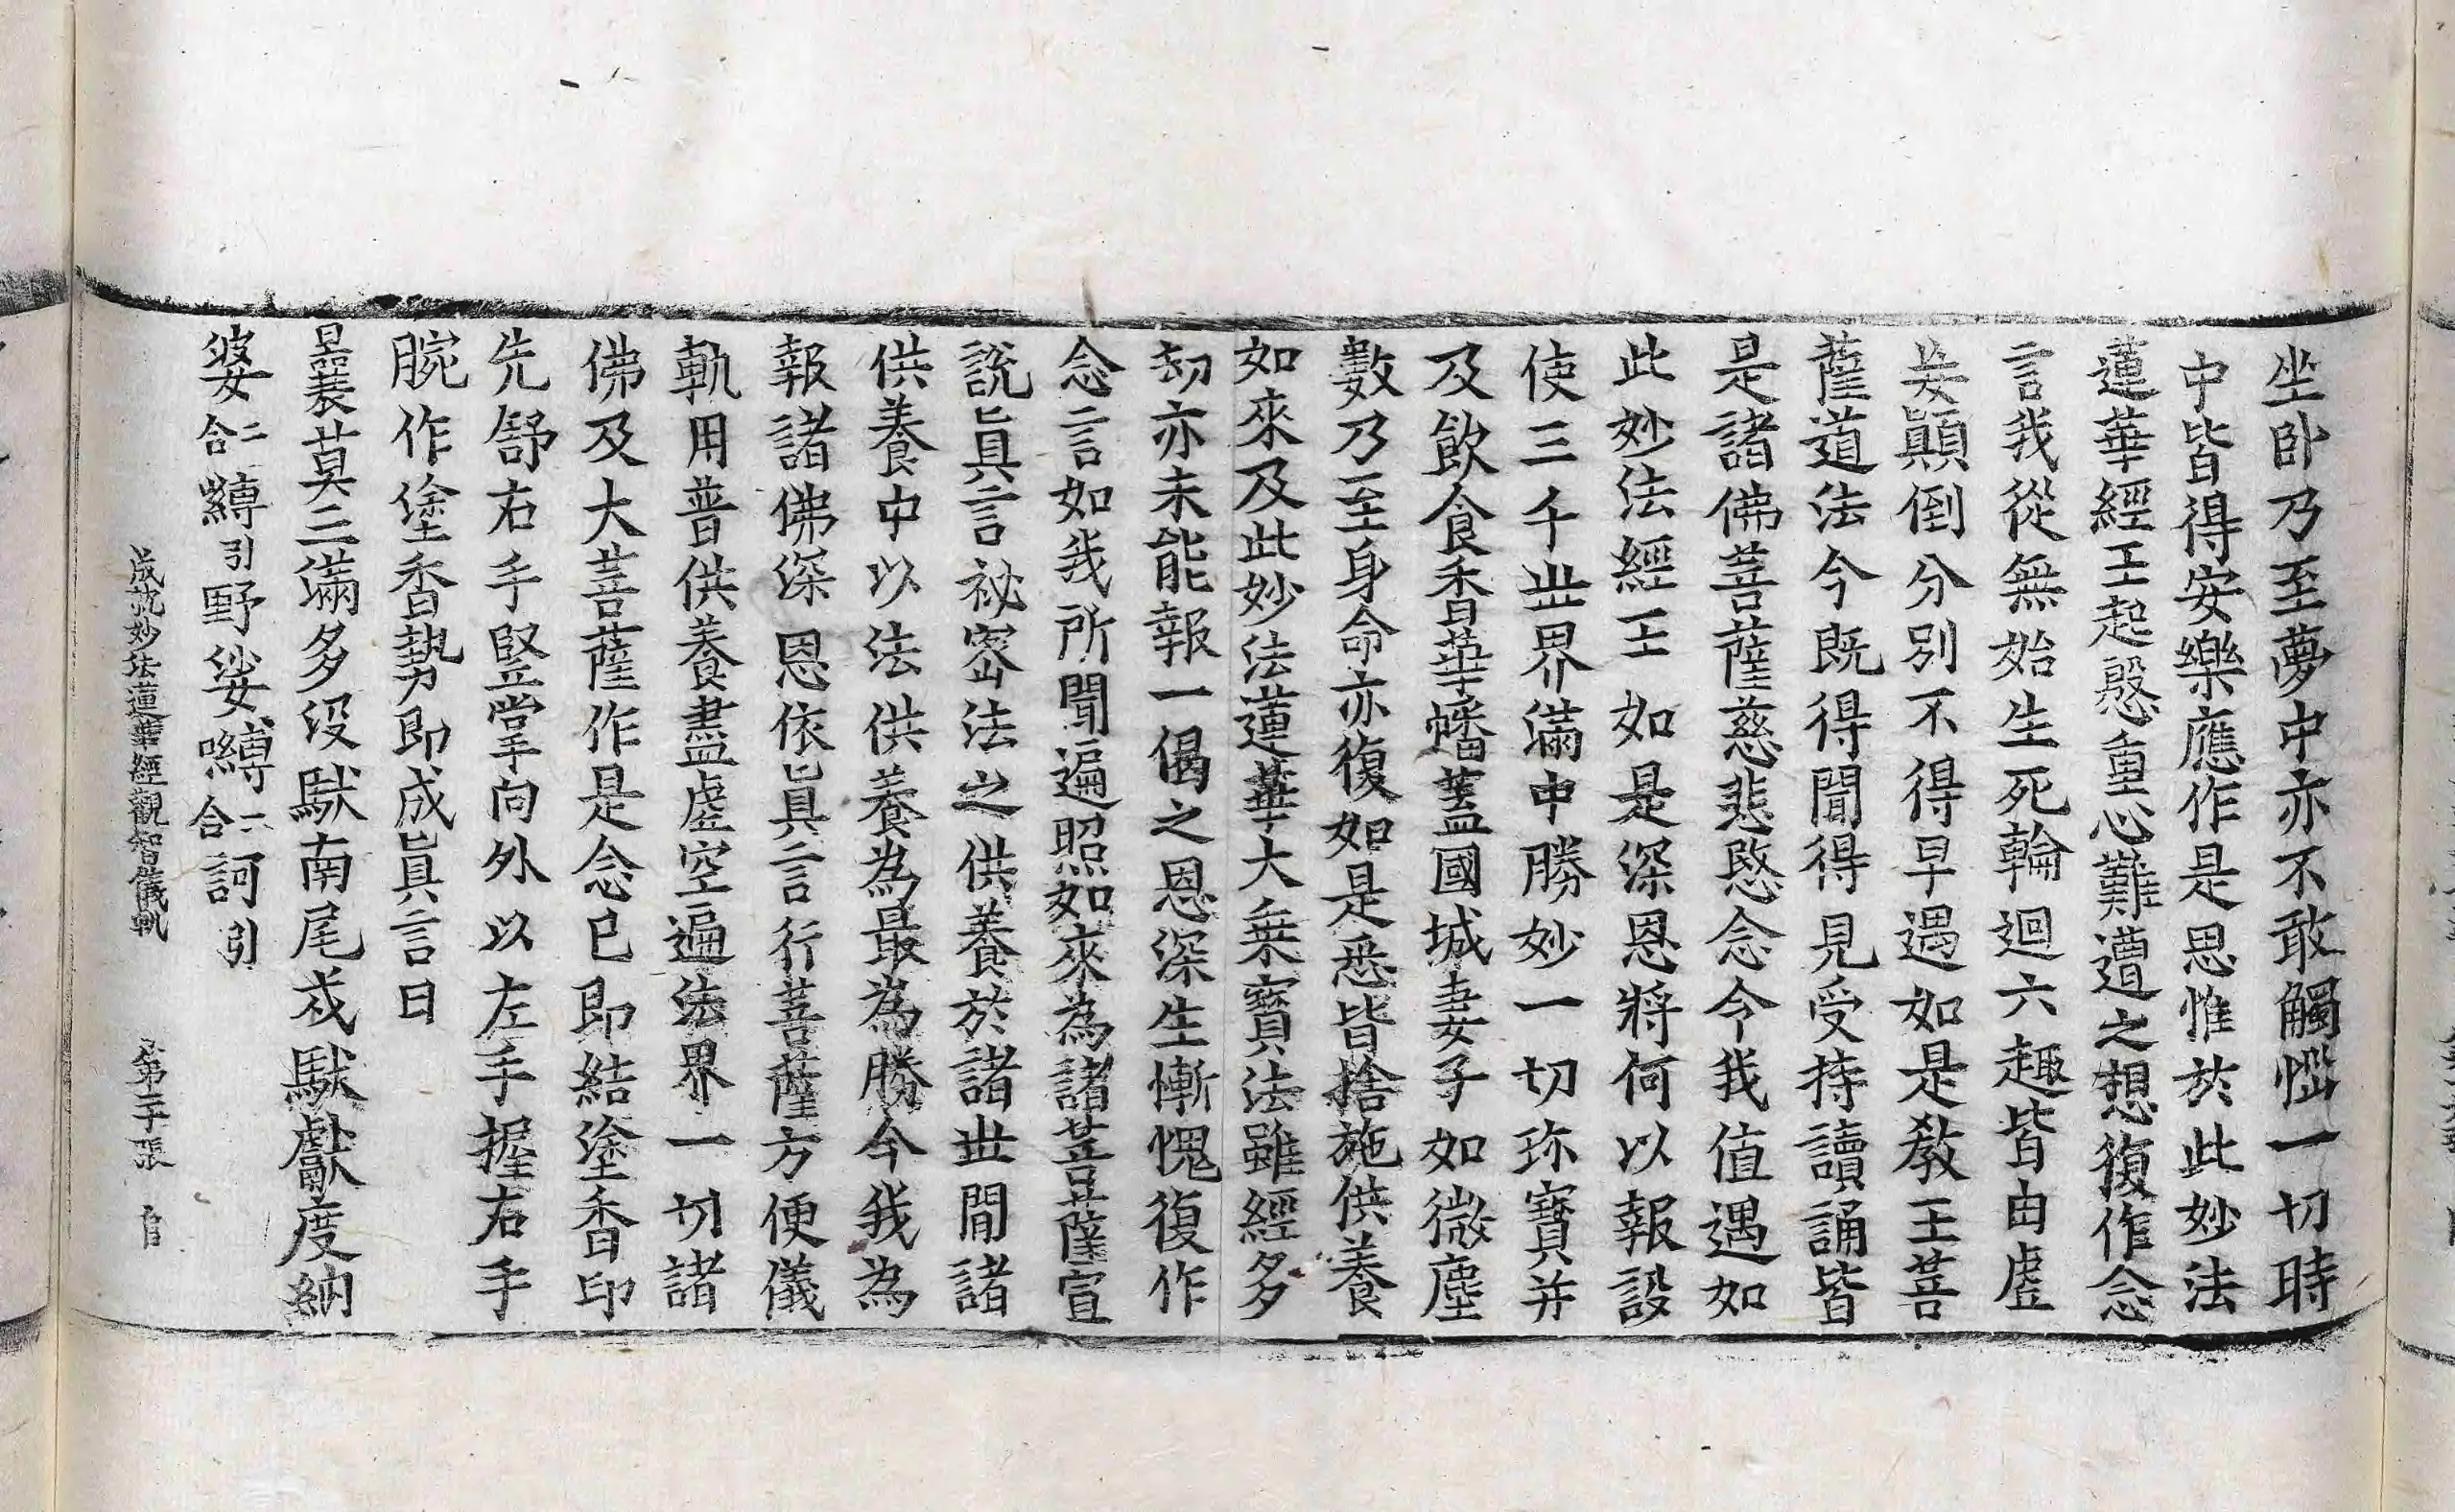 坐卧乃至夢中亦不敢觸惱一切時
中皆得安樂應作是思惟於此妙法
蓮華經王起慇重心難遭之想復作念
言我從無始生死輪迴六趣皆由虛
妄顚倒分別不得早遇如是教王菩
薩道法今既得聞得見受持讀誦皆
是諸佛菩薩慈悲愍念令我值遇如
此妙法經王如是深恩將何以報設
使三千世界滿中勝妙一切珎寶并
及飲食香華幡蓋國城妻子如微塵
數乃至身命亦復如是悉皆捨施供養
如來及此妙法蓮華大乗寶法雖經多
劫亦未能報一偈之恩深生慚愧復作
念言如我所聞遍照如來為諸菩薩宣
說眞言祕密法之供養於諸世間諸
供養中以法供養為最為勝今我為
報諸佛深恩依眞言行菩薩方便儀
軌用普供養盡虛空遍法界一切諸
佛及大菩薩作是念已即結塗香印
先舒右手竪掌向外以左手握右手
腕作塗香勢即成眞言曰
曩莫三滿多沒馱南尾戎馱巘度納
婆二合嚩引野娑嚩二合訶引
成就妙法蓮華經觀智儀軌 第二十張 自